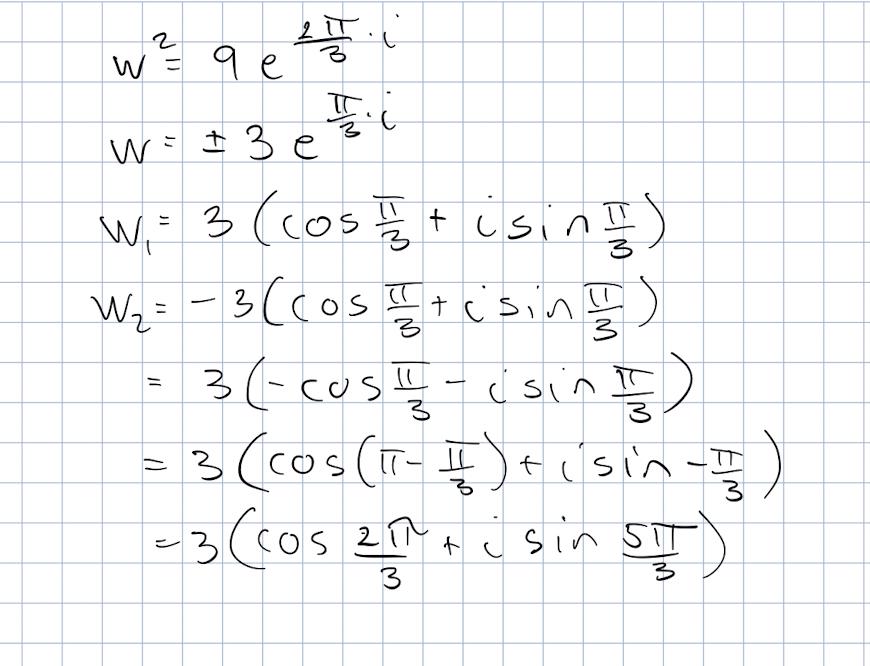 w² = 9 e^(2π/3 · i)
w = ± 3 e^(π/3 · i)
w₁ = 3 (cos π/3 + i sin π/3)
w₂ = -3 (cos π/3 + i sin π/3)
= 3 (-cos π/3 - i sin π/3)
= 3 (cos(π - π/3) + i sin -π/3)
= 3 (cos 2π/3 + i sin 5π/3)